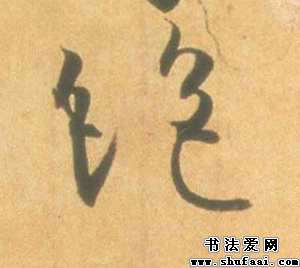 飽
书法爱网
www.shufaai.com